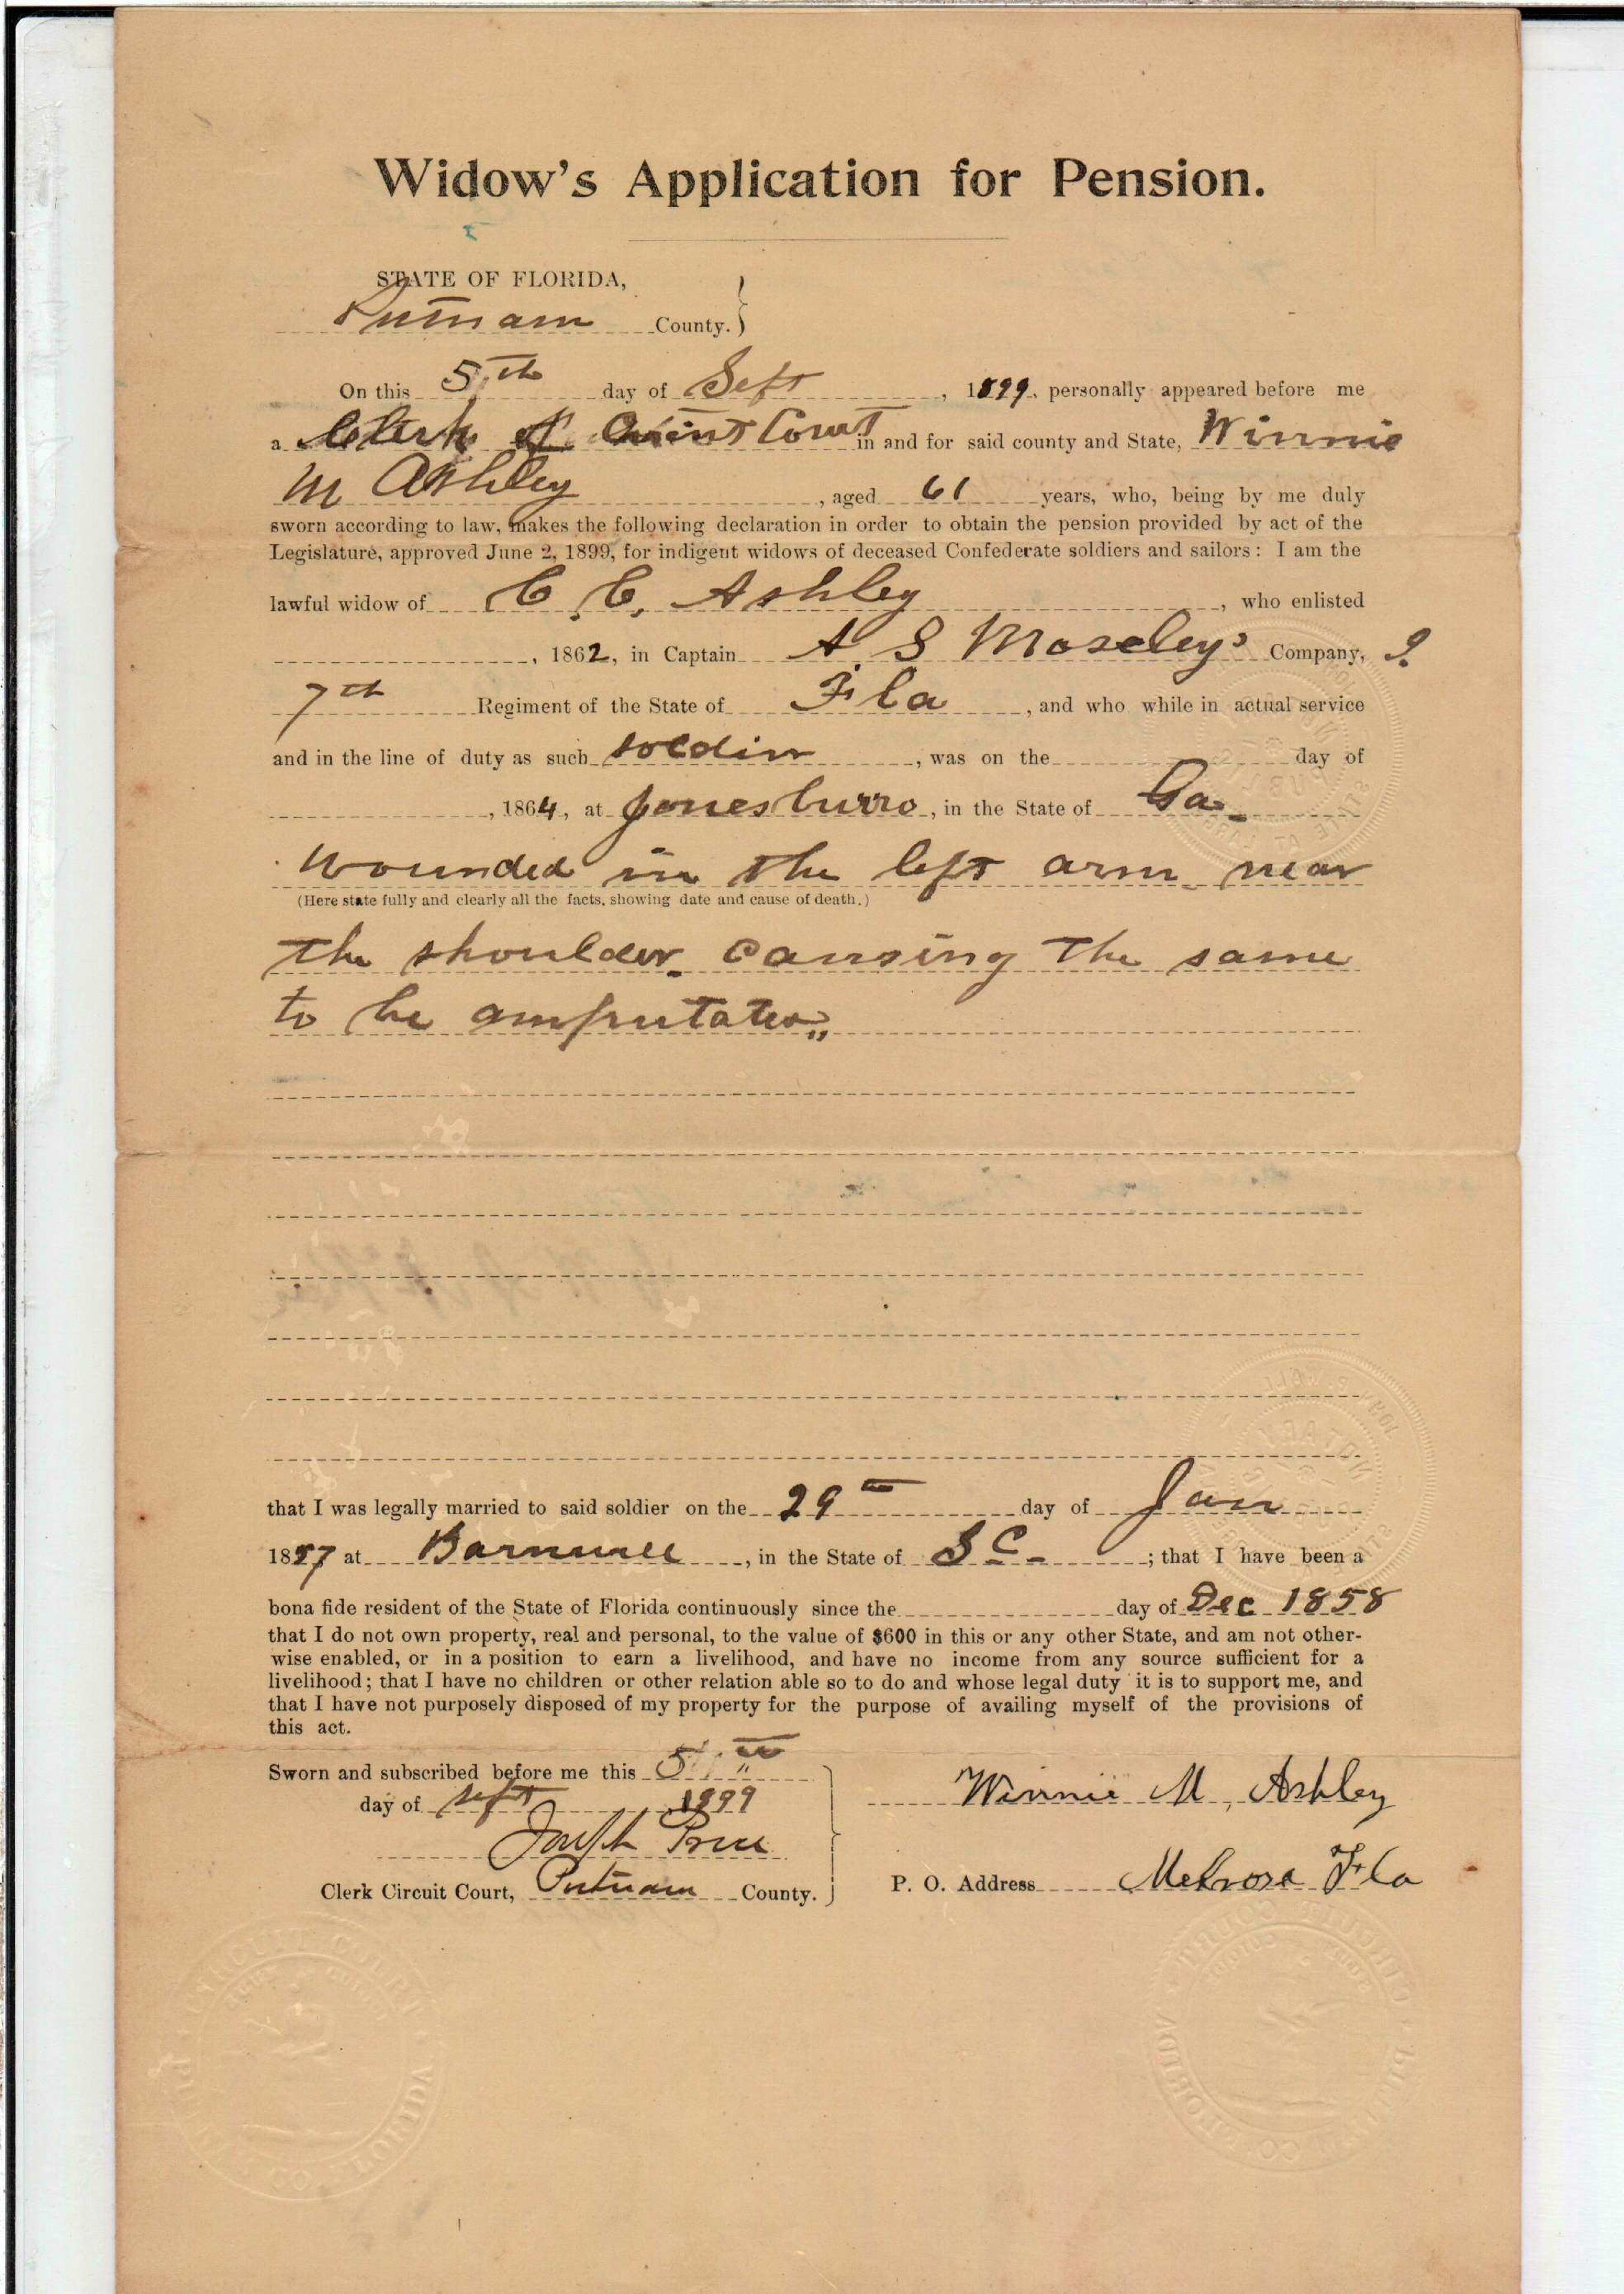 Widow's Application for Pension.
STATE OF FLORIDA,
Putnam County.
On this 5th day of Sept, 1899, personally appeared before me
a Clerk of Circuit Court in and for said county and State, Winnie
M Ashley, aged 61 years, who, being by me duly
sworn according to law, makes the following declaration in order to obtain the pension provided by act of the
Legislature, approved June 2, 1899, for indigent widows of deceased Confederate soldiers and sailors: I am the
lawful widow of C. C. Ashley, who enlisted
, 1862, in Captain A. S Moseleys Company,
7th Regiment of the State of Fla, and who while in actual service
and in the line of duty as such soldier, was on the day of
, 1864, at Jonesburro, in the State of Ga
wounded in the left arm near
(Here state fully and clearly all the facts, showing date and cause of death.)
the shoulder causing the same
to be amputated
that I was legally married to said soldier on the 29th day of Jan
1857 at Barnwell, in the State of S C; that I have been a
bona fide resident of the State of Florida continuously since the day of Dec 1858
that I do not own property, real and personal, to the value of $600 in this or any other State, and am not other-
wise enabled, or in a position to earn a livelihood, and have no income from any source sufficient for a
livelihood; that I have no children or other relation able so to do and whose legal duty it is to support me, and
that I have not purposely disposed of my property for the purpose of availing myself of the provisions of
this act.
Sworn and subscribed before me this 5th
day of Sept 1899
Joseph Price
Clerk Circuit Court, Putnam County.
Winnie M. Ashley
P. O. Address Melrose Fla
CIRCUIT COURT
PUTNAM CO. FLORIDA